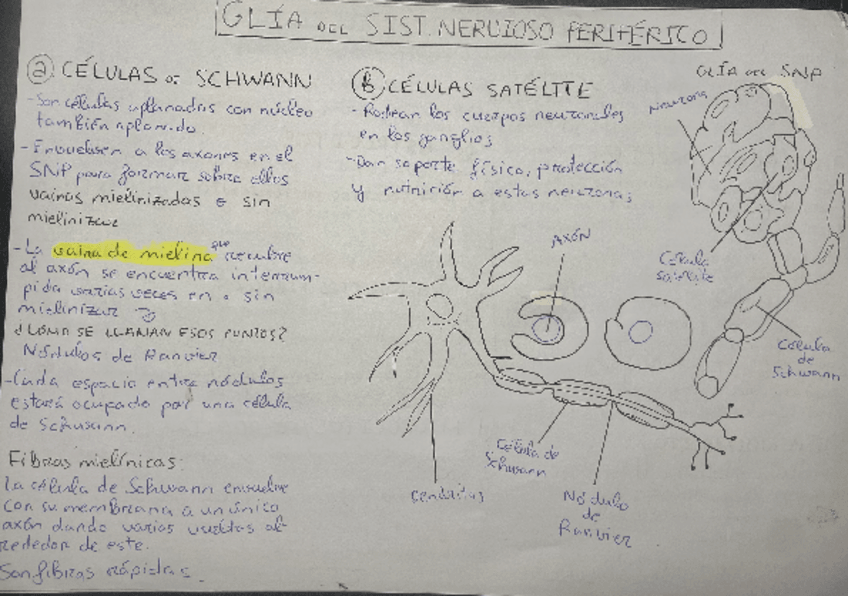 GLÍA DEL SIST. NERVIOSO PERIFÉRICO
a CÉLULAS DE SCHWANN
- Son células aplanadas con núcleo
también aplanado.
- Envuelven a los axones en el
SNP para formar sobre ellos
vainas mielinizadas o sin
mielinizar
- La vaina de mielina que recubre
al axón se encuentra interrum-
pida varias veces en o sin
mielinizar
¿COMO SE LLAMAN ESOS PUNTOS?
Nódulos de Ranvier
- Cada espacio entre nódulos
estará ocupado por una célula
de Schwann.
Fibras mielínicas:
La célula de Schwann envuelve
con su membrana a un único
axón dando varias vueltas al-
rededor de este.
Son fibras rápidas.
b CÉLULAS SATÉLITE
- Rodean los cuerpos neuronales
en los ganglios
- Dan soporte física, protección
y nutrición a estas neuronas
GLÍA DEL SNP
Neurona
Célula
satélite
Célula
de
Schwann
AXÓN
Célula de
Schwann
Nódulo
de
Ranvier
Dendritas